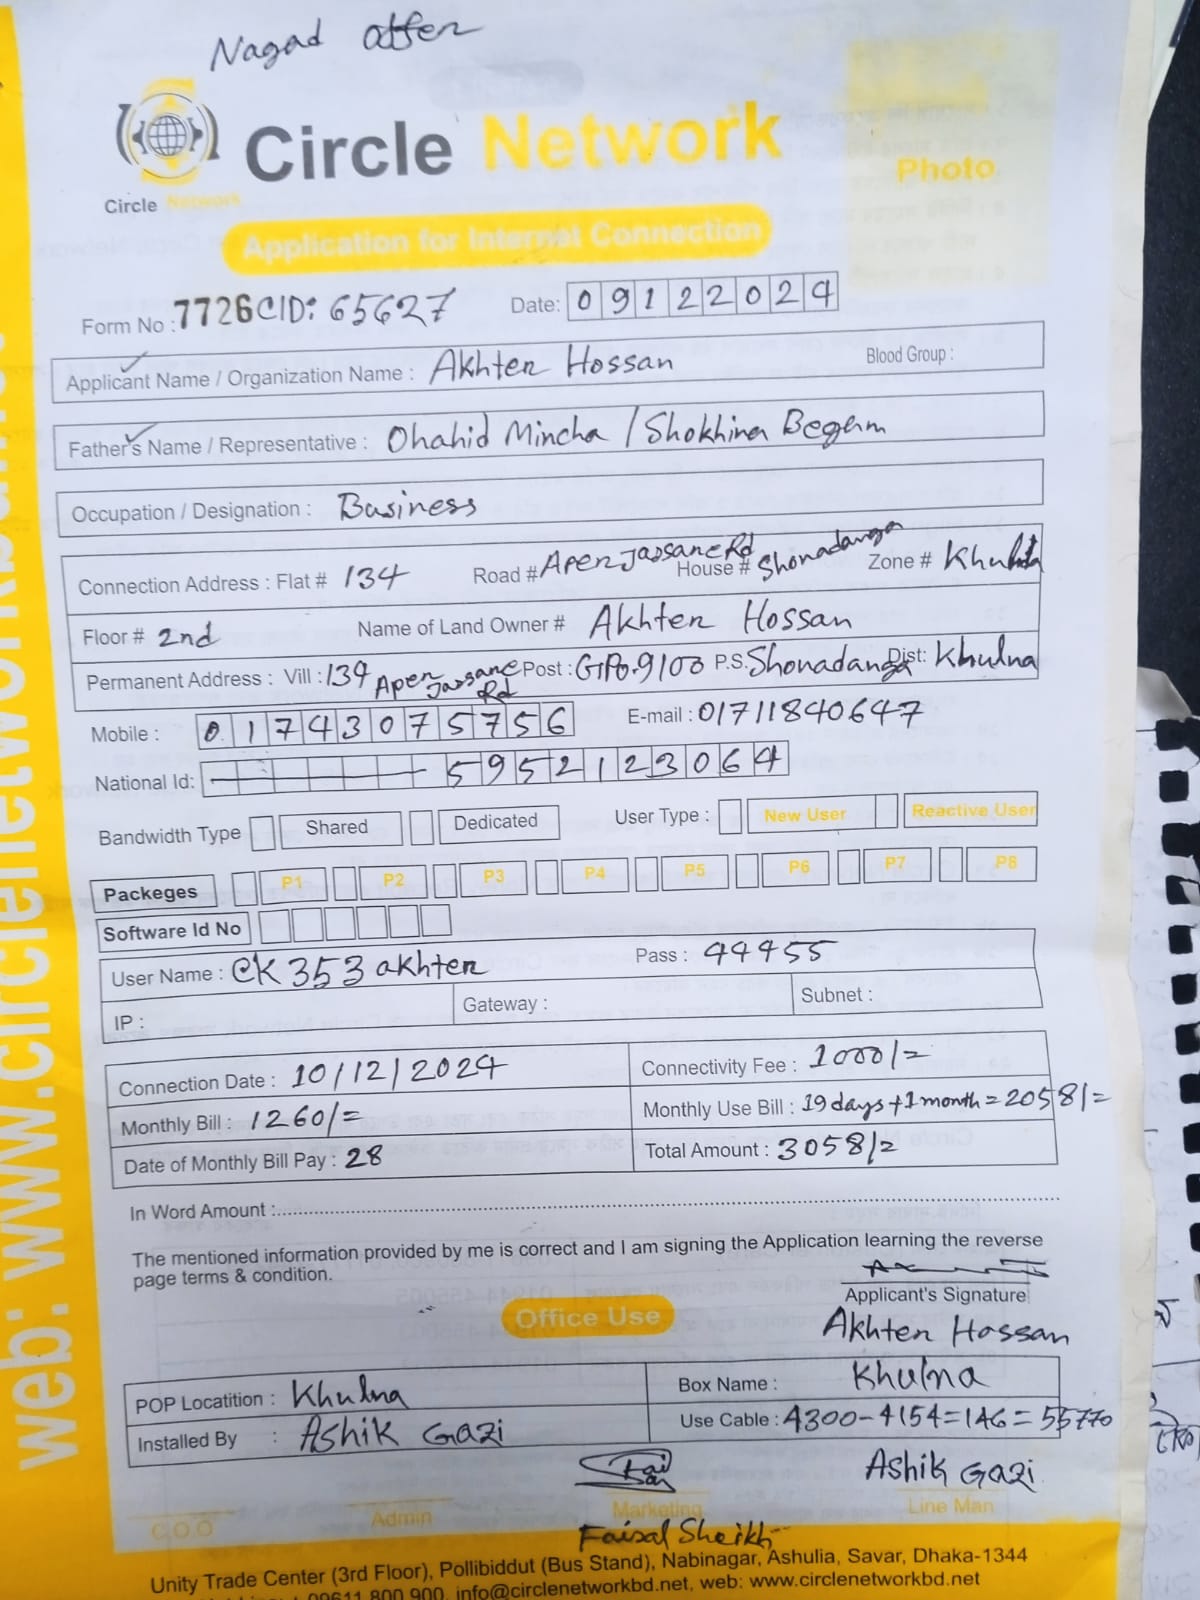 Nagad offer
Circle Network
Circle Network
Photo
Application for Internet Connection
Form No : 7726 CID: 65627 Date: 09122024
Applicant Name / Organization Name : Akhter Hossan Blood Group :
Father's Name / Representative : Ohahid Mincha / Shokhina Begam
Occupation / Designation : Business
Connection Address : Flat # 134 Road # Aper Jassane Rd House # Shonadanga Zone # Khulna
Floor # 2nd Name of Land Owner # Akhter Hossan
Permanent Address : Vill : 134 Aper Jassane Rd Post : GPO-9100 P.S. Shonadanga Dist: Khulna
Mobile : 01743075756 E-mail : 01711840647
National Id: 5952123064
Bandwidth Type Shared Dedicated User Type : New User Reactive User
Packeges P1 P2 P3 P4 P5 P6 P7 P8
Software Id No
User Name : CK353akhter Pass : 44455
IP : Gateway : Subnet :
Connection Date : 10/12/2024 Connectivity Fee : 1000/=
Monthly Bill : 1260/= Monthly Use Bill : 19 days + 1 month = 2058/=
Date of Monthly Bill Pay : 28 Total Amount : 3058/=
In Word Amount :
The mentioned information provided by me is correct and I am signing the Application learning the reverse
page terms & condition.
Applicant's Signature
Office Use
Akhter Hossan
POP Locatition : Khulna Box Name : Khulna
Installed By : Ashik Gazi Use Cable : 4300-4154=146=55770
Ashik Gazi
C.O.O Admin Marketing Line Man
Faisal Sheikh
Unity Trade Center (3rd Floor), Pollibiddut (Bus Stand), Nabinagar, Ashulia, Savar, Dhaka-1344
09611 800 900, info@circlenetworkbd.net, web: www.circlenetworkbd.net
web: www.circlenetworkbd.net